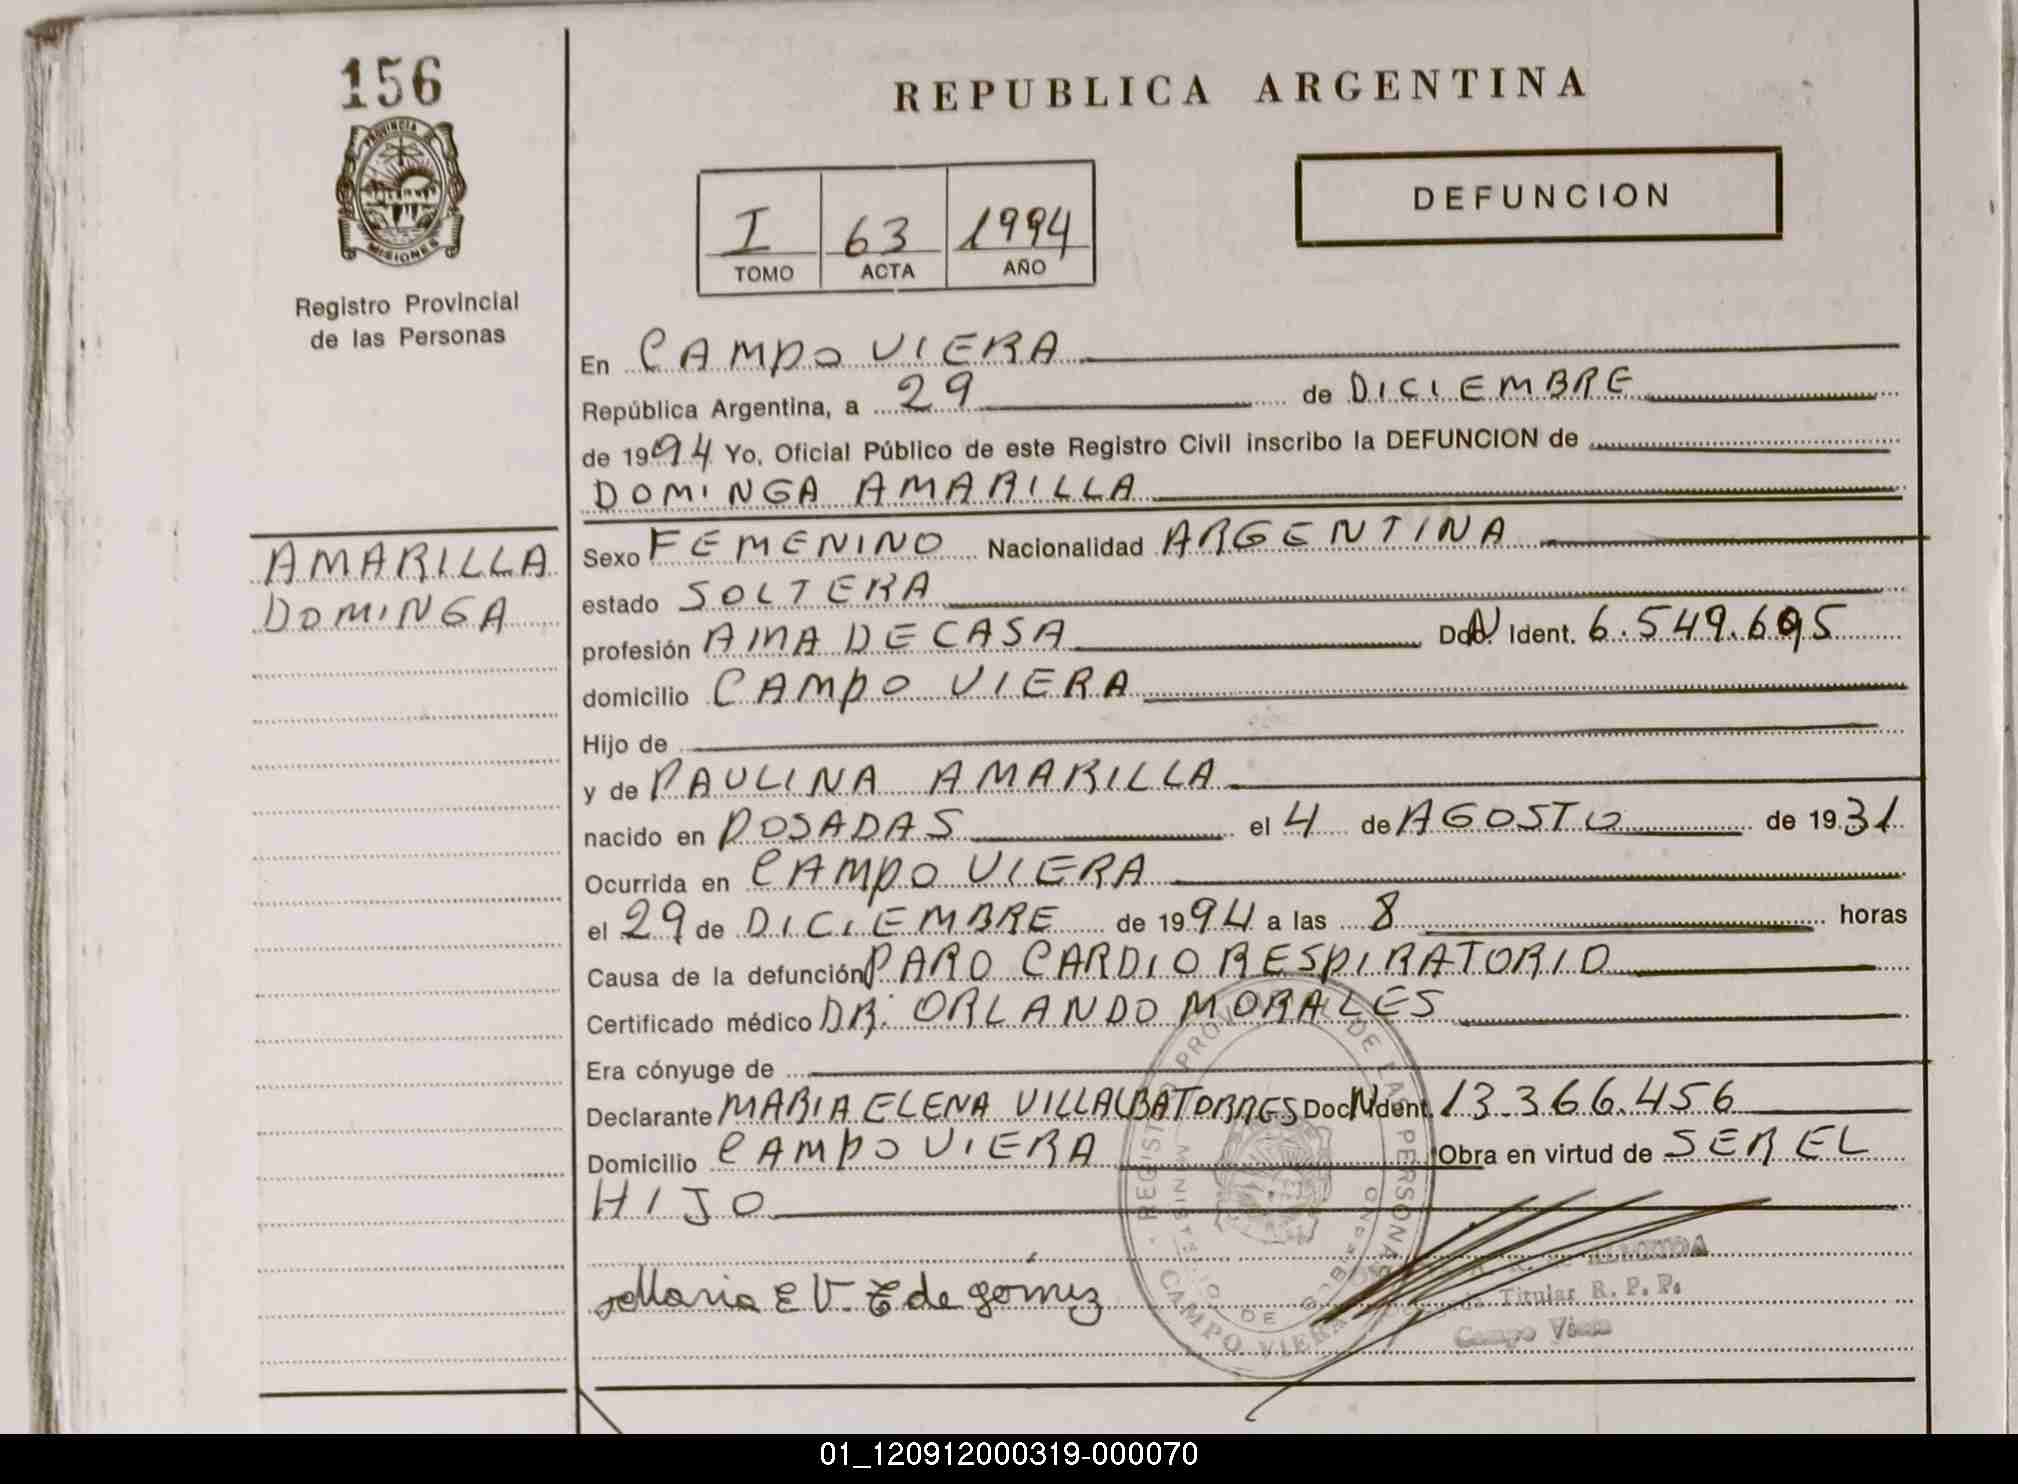 156
PROVINCIA
MISIONES
Registro Provincial
de las Personas
REPUBLICA ARGENTINA
DEFUNCION
I 63 1994
TOMO ACTA AÑO
En CAMPO VIERA
República Argentina, a 29 de DICIEMBRE
de 1994 Yo, Oficial Público de este Registro Civil inscribo la DEFUNCION de
DOMINGA AMARILLA
AMARILLA
DOMINGA
Sexo FEMENINO Nacionalidad ARGENTINA
estado SOLTERA
profesión AMA DE CASA Doc. N Ident. 6.549.695
domicilio CAMPO VIERA
Hijo de
y de PAULINA AMARILLA
nacido en POSADAS el 4 de AGOSTO de 1931
Ocurrida en CAMPO VIERA
el 29 de DICIEMBRE de 1994 a las 8 horas
Causa de la defunción PARO CARDIO RESPIRATORIO
Certificado médico DR: ORLANDO MORALES
Era cónyuge de
Declarante MARIA ELENA VILLALBA TORRES Doc N Ident. 13.366.456
Domicilio CAMPO VIERA Obra en virtud de SER EL
HIJO
Maria E V. T de gomez
REGISTRO PROVINCIAL DE LAS PERSONAS
MINISTERIO DE GOBIERNO
CAMPO VIERA
R. de ALMEIDA
Titular R. P. P.
Campo Viera
01_120912000319-000070